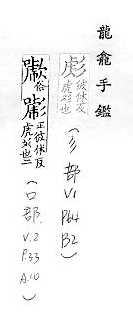 龍龕手鑑
彪 彼休反虎文也
(彡部 V1 P64 B2)
俗
正彼休反虎文也二
(口部 V.2 P.33 A.10)